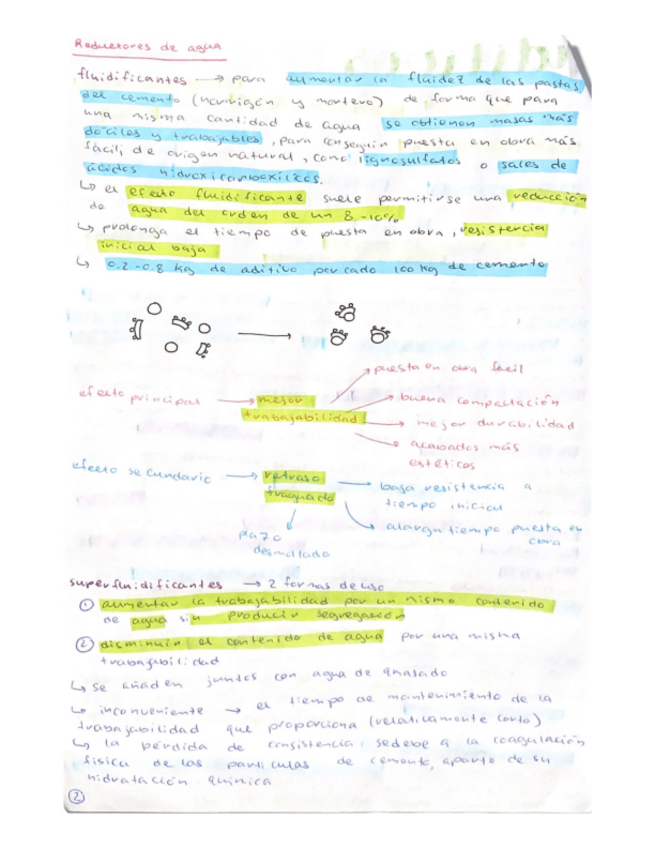 Reductores de agua
fluidificantes → para aumentar la fluidez de las pastas
del cemento (hormigón y mortero) de forma que para
una misma cantidad de agua se obtienen masas más
dóciles y trabajables, para conseguir puesta en obra más
fácil, de origen natural, como lignosulfatos o sales de
ácidos hidroxicarboxílicos.
↳ el efecto fluidificante suele permitirse una reducción
de agua del orden de un 8-10%
↳ prolonga el tiempo de puesta en obra, resistencia
inicial baja
↳ 0.2-0.8 kg de aditivo por cada 100 kg de cemento
puesta en obra fácil
efecto principal → mejor → buena compactación
trabajabilidad → mejor durabilidad
→ acabados más
estéticos
efecto secundario → retraso
fraguado → baja resistencia a
tiempo inicial
alarga tiempo puesta en
obra
plazo
desmoldado
superfluidificantes → 2 formas de uso
① aumentar la trabajabilidad por un mismo contenido
de agua sin producir segregación
② disminuir el contenido de agua por una misma
trabajabilidad
↳ se añaden juntos con agua de amasado
↳ inconveniente → el tiempo de mantenimiento de la
trabajabilidad que proporciona (relativamente corto)
↳ la pérdida de consistencia se debe a la coagulación
física de las partículas de cemento, aparte de su
hidratación química
②